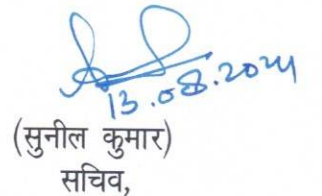 13.08.2021
(सुनील कुमार)
सचिव,